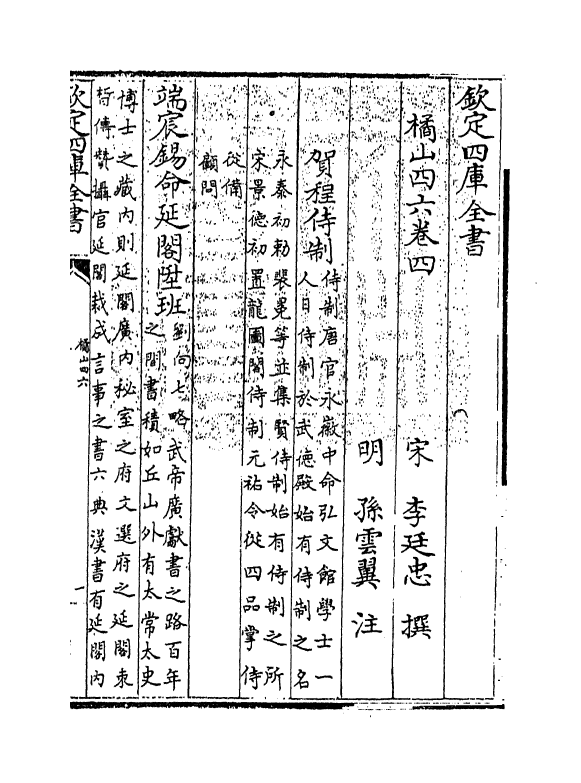 欽定四庫全書
橘山四六卷四
宋 李廷忠 撰
明 孫雲翼 注
賀程侍制
侍制唐官永徽中命弘文館學士一
人日侍制於武德殿始有侍制之名
永泰初勅裴冕等並集賢侍制始有侍制之所
宋景德初置龍圖閣侍制元祐令從四品掌侍
從備
顧問
端宸錫命延閣陞班
劉向七略武帝廣獻書之路百年
之間書積如丘山外有太常太史
博士之藏内則延閣廣内秘室之府文選府之延閣束
晳傳贊攝官延閣裁成言事之書六典漢書有延閣内
欽定四庫全書
橘山四六
一